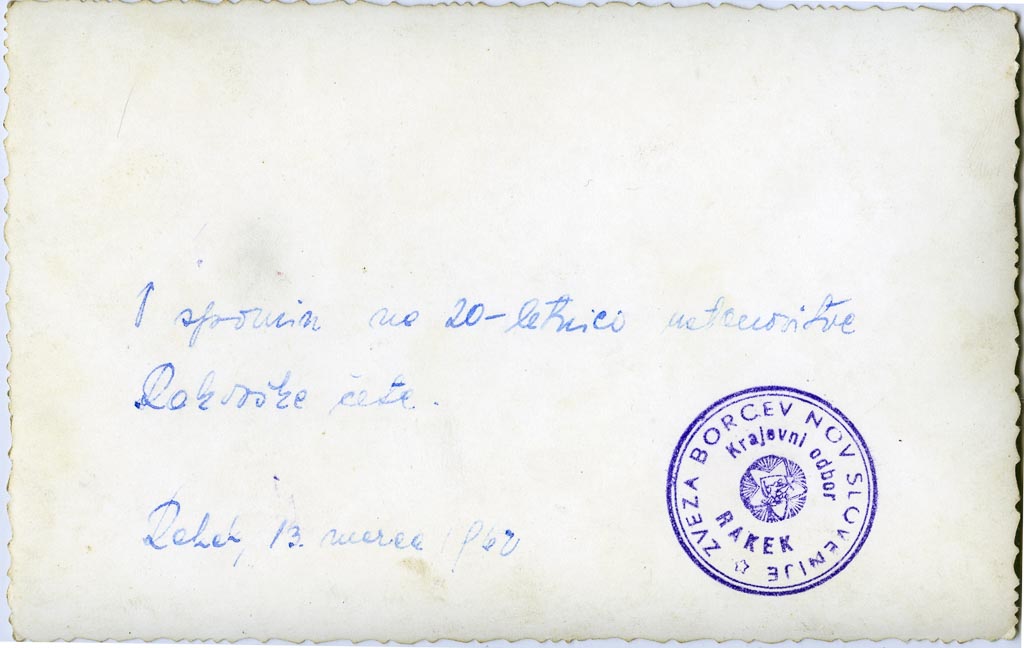 V spomin na 20-letnico ustanovitve
Rakovške čete.
Rakek, 13. marca 1962
ZVEZA BORCEV NOV SLOVENIJE
Krajevni odbor
RAKEK